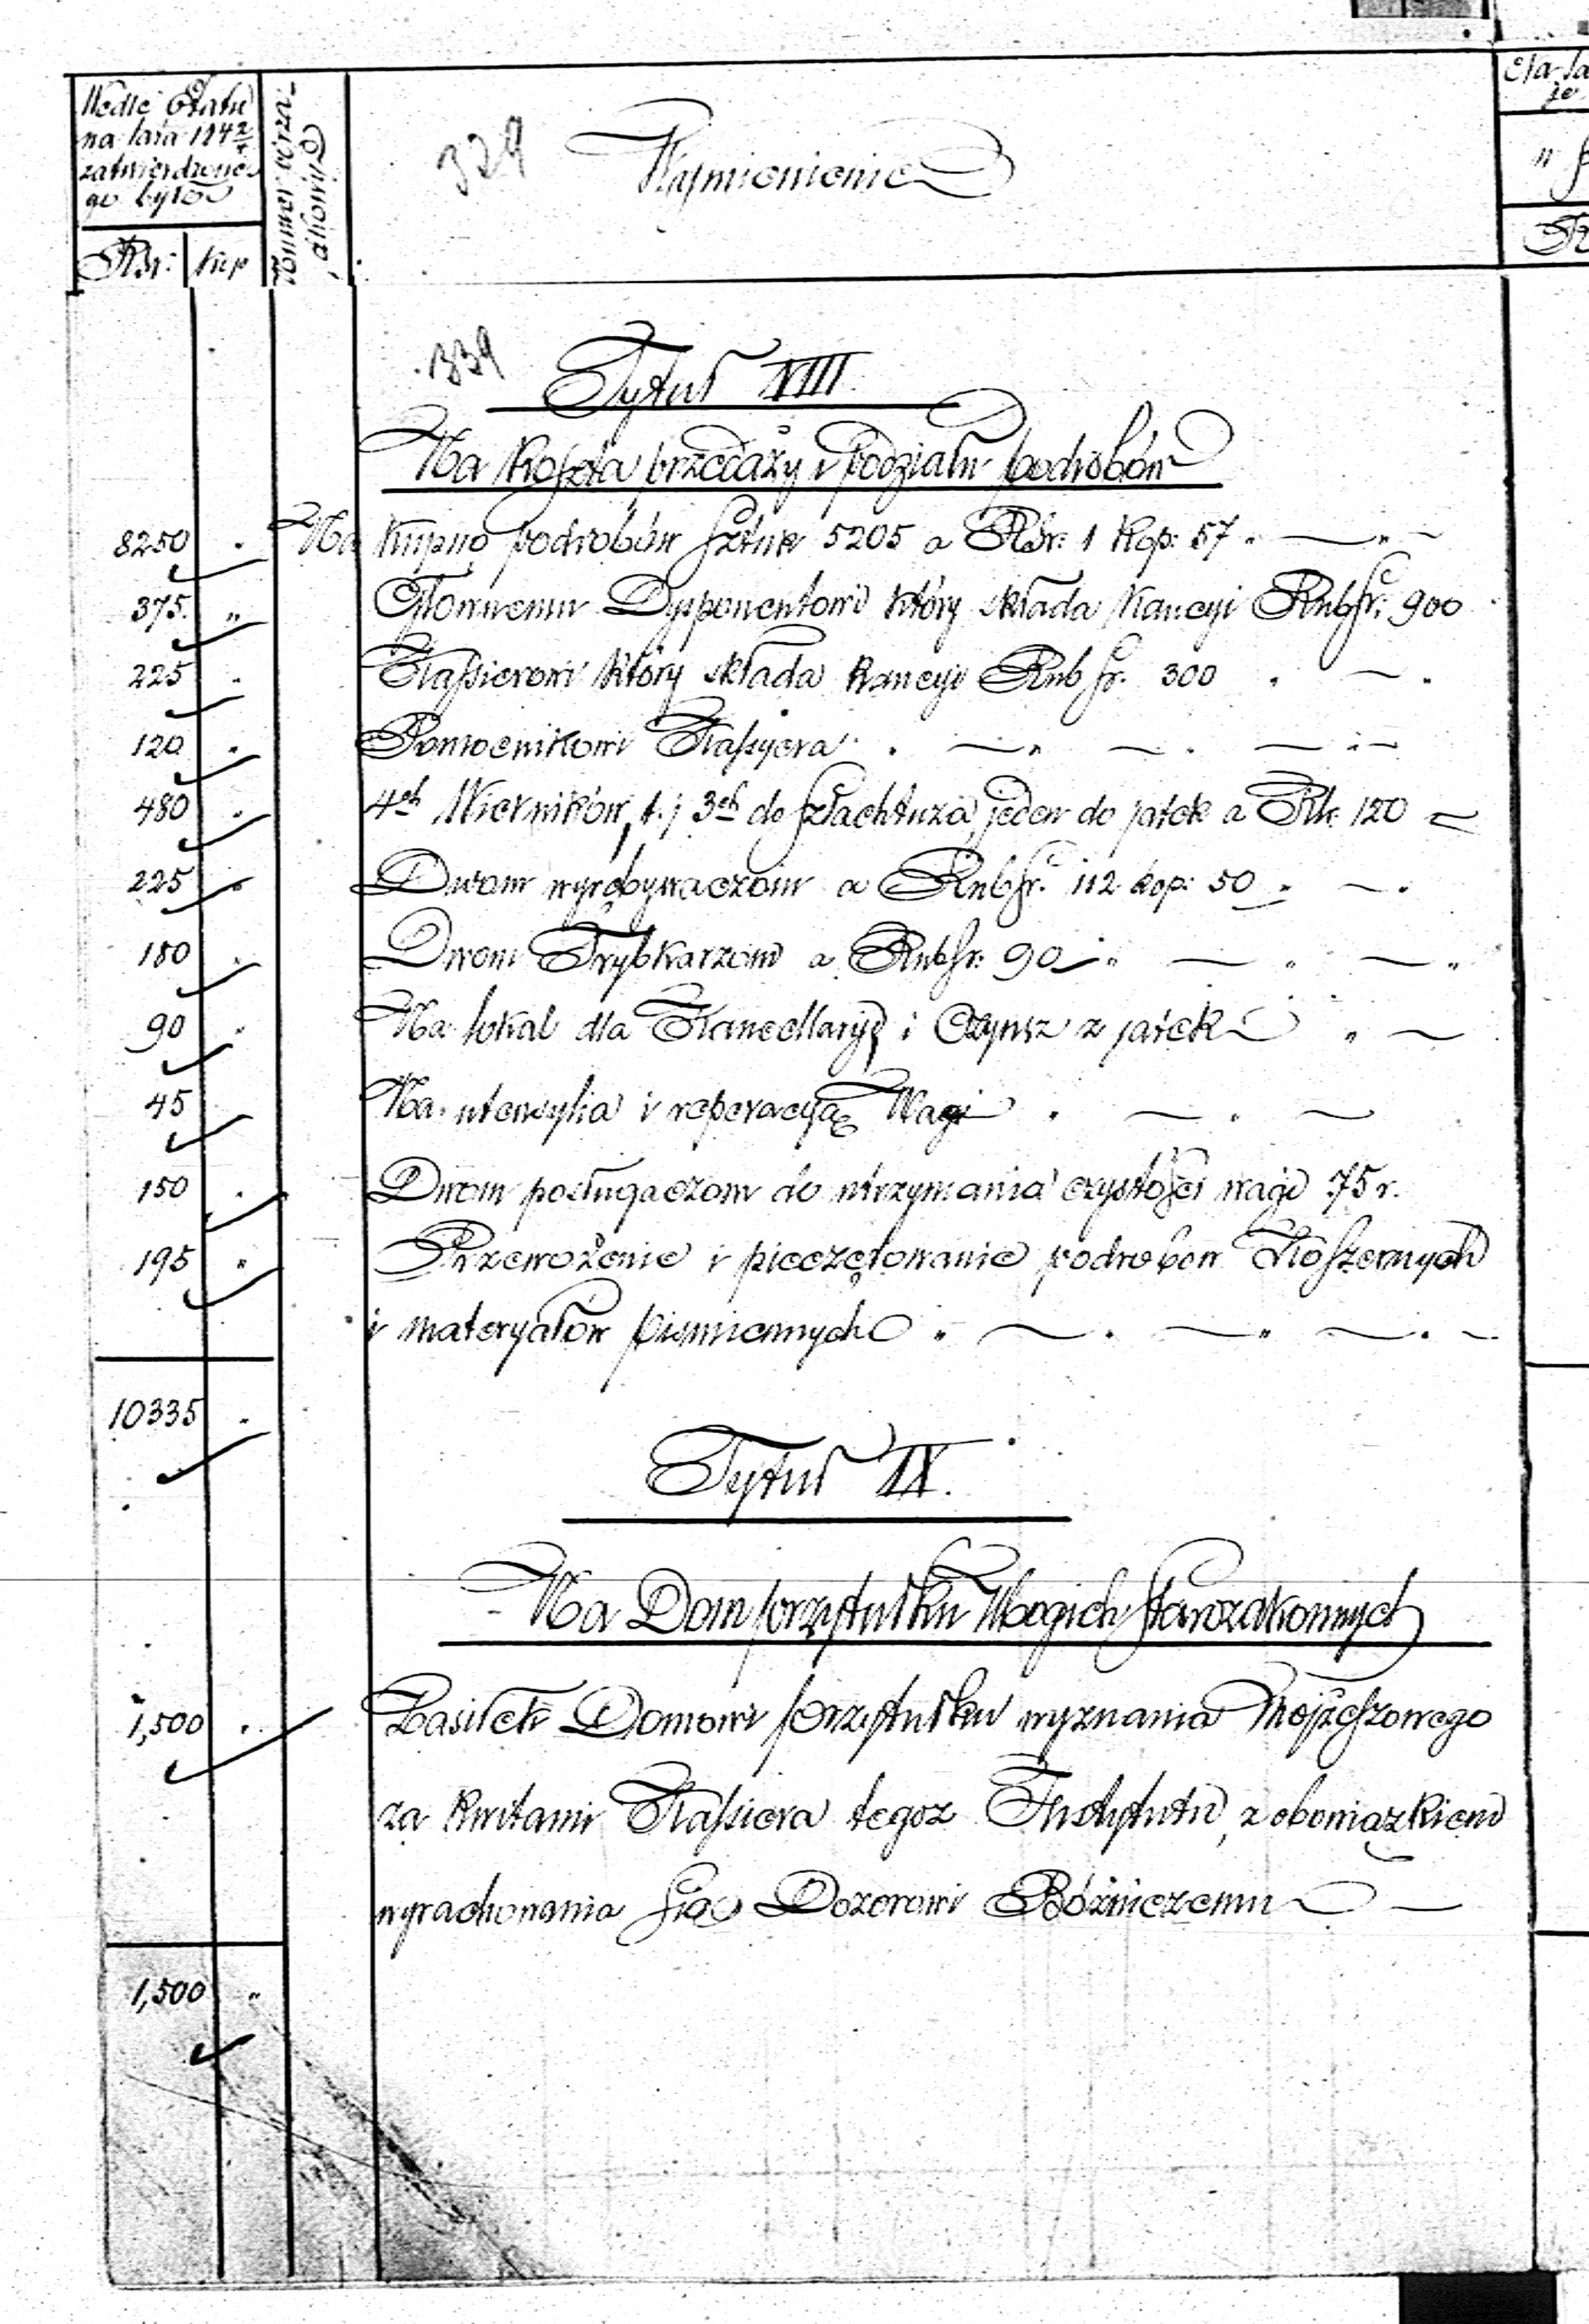 Wedle Etatu
na lata 184 2/4
zatwierdzone
go było
Rsr: kop
Numer pozycyi
329 Wymienienie
339
Tytuł VIII.
Na Koszta przedaży i podziału podrobów
8250 " Na kupno podrobów sztuk 5205 a RSr: 1 Kop: 57
375. " Głównemu Dysponentowi który składa Kaucyi Rubsr: 900
225 " Kassierowi który składa kaucyi Rubsr. 300
120 " Pomocnikowi Kassyera
480 " 4ch Wierników, t.j 3ch do szlachtuza jeden do jatek a Rsr. 120
225 " Dwom wyrobywaczom a Rubsr. 112 kop: 50
180 " Dwom Trybkarzom a Rubsr: 90
90 " Na lokal dla Kancellaryi i Czynsz z jatek
45 Na utensylia i reperacyją Wagi
150 " Dwom posługaczom do utrzymania czystości wagi 75 r.
195 " Przewożenie i pieczętowanie podrobów Koszernych
i materyałów piśmiennych
10335 "
Tytuł IX.
Na Dom przytułku Ubogich Starozakonnych
1,500 " Zasiłek Domowi przytułku wyznania Mojżeszowego
za kwitami Kassiera tegoz Instytutu, z obowiązkiem
wyrachowania się Dozorowi Bóżniczemu
1,500 "